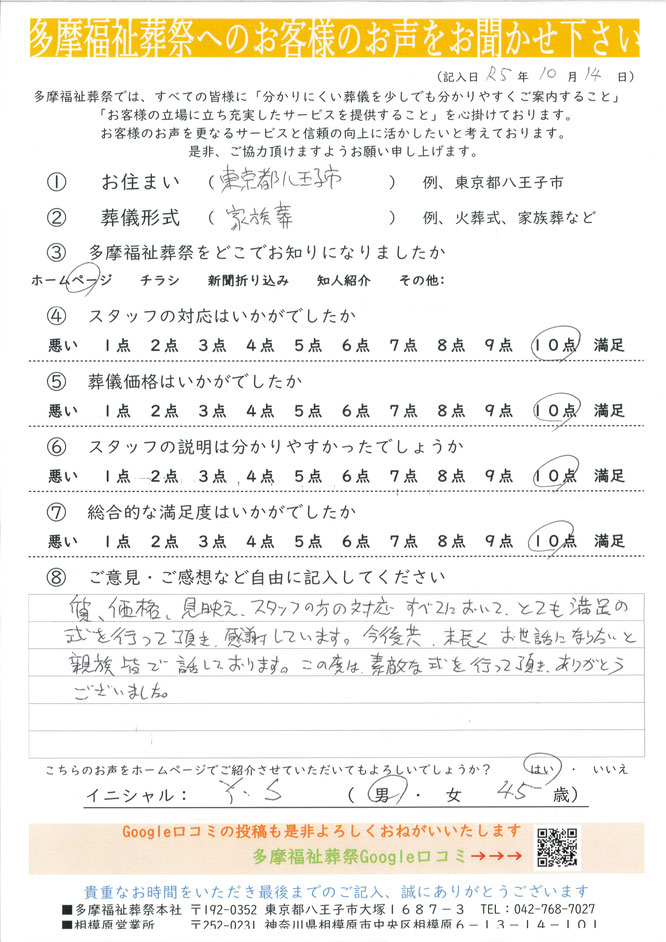 多摩福祉葬祭へのお客様のお声をお聞かせ下さい
(記入日 R5 年 10 月 14 日)
多摩福祉葬祭では、すべての皆様に「分かりにくい葬儀を少しでも分かりやすくご案内すること」
「お客様の立場に立ち充実したサービスを提供すること」を心掛けております。
お客様のお声を更なるサービスと信頼の向上に活かしたいと考えております。
是非、ご協力頂けますようお願い申し上げます。
① お住まい (東京都八王子市) 例、東京都八王子市
② 葬儀形式 (家族葬) 例、火葬式、家族葬など
③ 多摩福祉葬祭をどこでお知りになりましたか
ホームページ チラシ 新聞折り込み 知人紹介 その他:
④ スタッフの対応はいかがでしたか
悪い 1点 2点 3点 4点 5点 6点 7点 8点 9点 10点 満足
⑤ 葬儀価格はいかがでしたか
悪い 1点 2点 3点 4点 5点 6点 7点 8点 9点 10点 満足
⑥ スタッフの説明は分かりやすかったでしょうか
悪い 1点 2点 3点 4点 5点 6点 7点 8点 9点 10点 満足
⑦ 総合的な満足度はいかがでしたか
悪い 1点 2点 3点 4点 5点 6点 7点 8点 9点 10点 満足
⑧ ご意見・ご感想など自由に記入してください
質、価格、見映え、スタッフの方の対応 すべてにおいて、とても満足の
式を行って頂き、感謝しています。今後共、末長く お世話にならないと
親族皆で話しております。この度は、素敵な式を行って頂き、ありがとう
ございました。
こちらのお声をホームページでご紹介させていただいてもよろしいでしょうか? はい ・ いいえ
イニシャル: Y・S (男 ・ 女 45 歳)
Google口コミの投稿も是非よろしくおねがいいたします
多摩福祉葬祭Google口コミ→→→
貴重なお時間をいただき最後までのご記入、誠にありがとうございます
■多摩福祉葬祭本社 〒192-0352 東京都八王子市大塚1687-3 TEL:042-768-7027
■相模原営業所 〒252-0231 神奈川県相模原市中央区相模原6-13-14-101